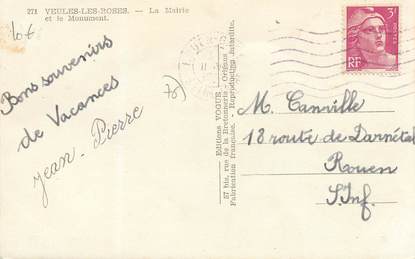 271 VEULES-LES-ROSES. — La Mairie
et le Monument.
10€
Bons souvenirs
de Vacances
Jean-Pierre
Editions VOGUE
57 bis, rue de la Bretonnerie - Orléans
Fabrication française. - Reproduction Interdite.
3F
POSTES
RF
M. Canville
18 route de Darnétal
Rouen
S.Inf.